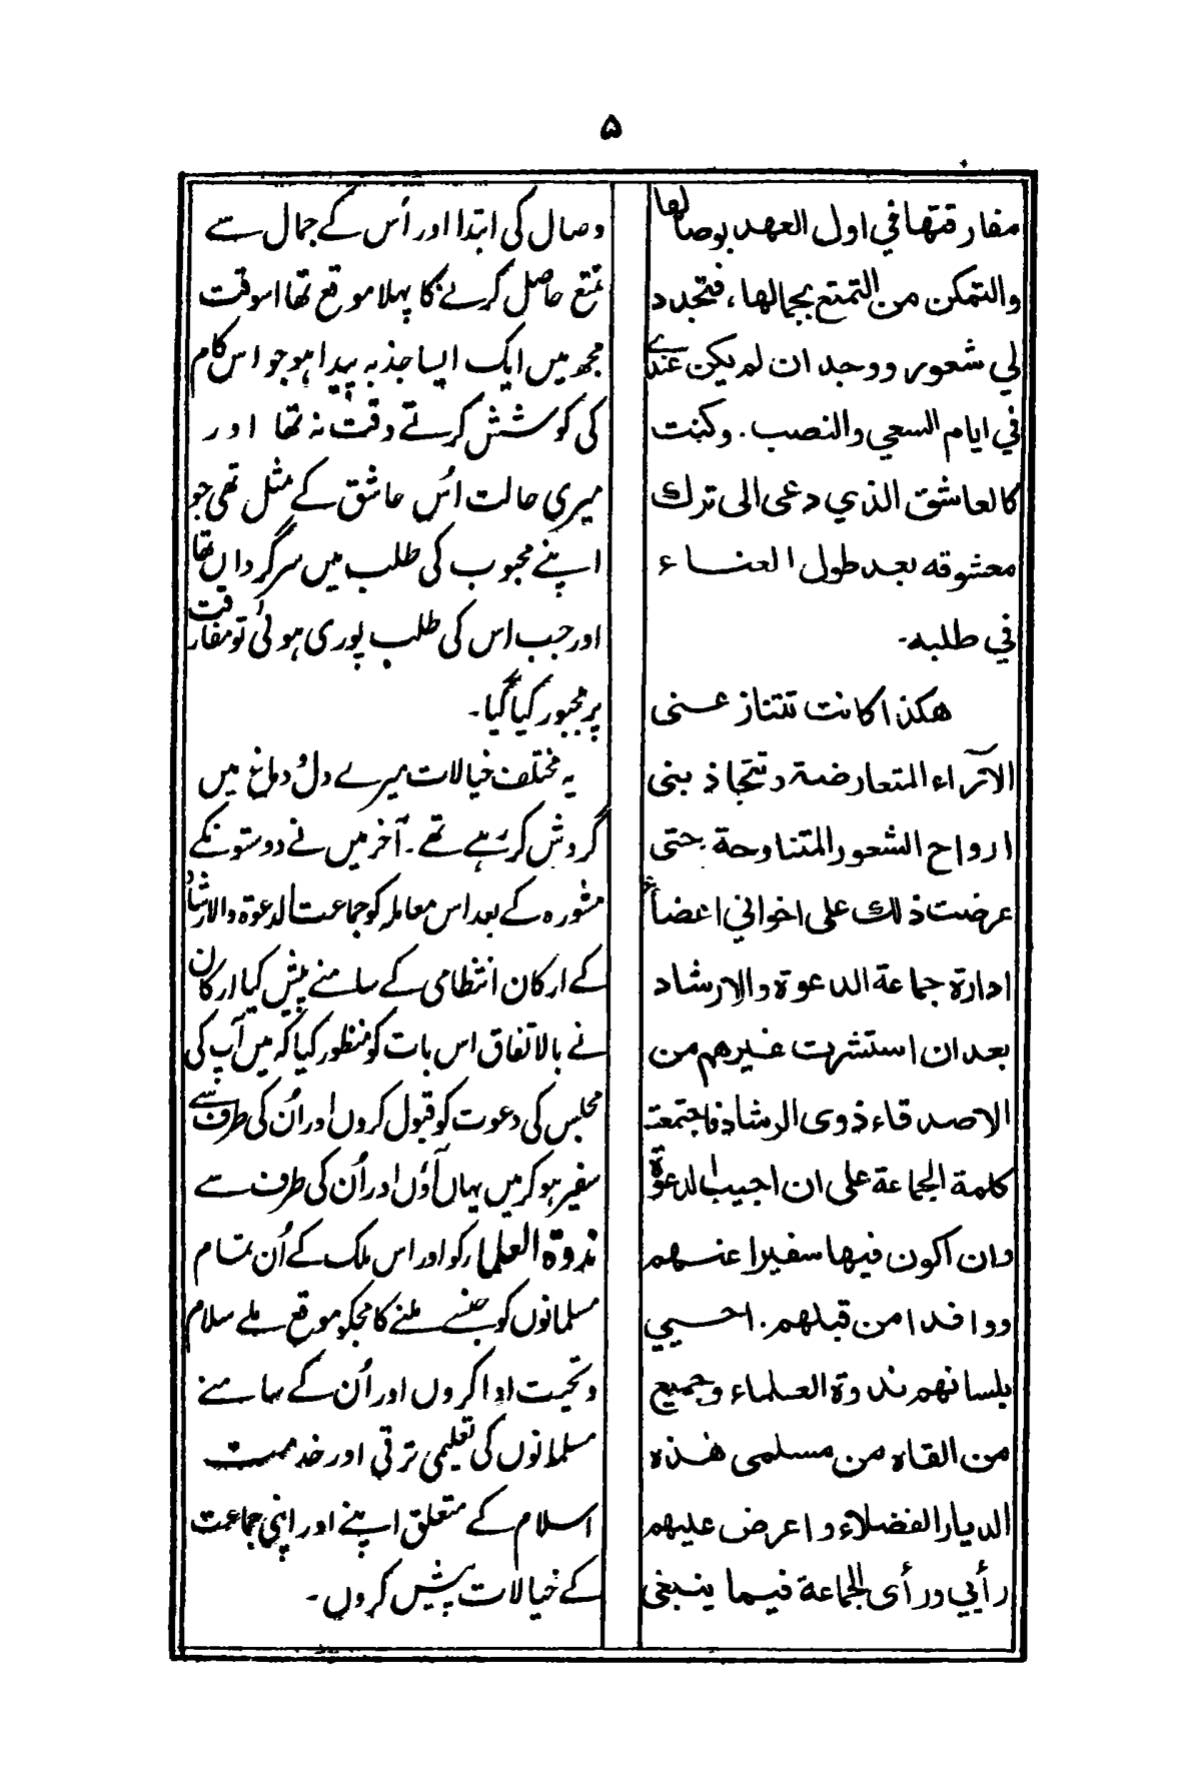 ۵
مفارقتها في اول العهد بوصالها
والتمكن من التمتع بجمالها، فتجدد
لي شعور ووجدان لم يكن عندي
في ايام السعي والنصب. وكنت
كالعاشق الذي دعى الى ترك
معشوقه بعد طول العناء
في طلبه۔
هكذا كانت تتناز عنى
الآراء المتعارضة وتتجاذ بنى
ارواح الشعور المتناوحة حتى
عرضت ذلك على اخواني اعضاء
ادارة جماعة الدعوة والارشاد
بعد ان استشرت غيرهم من
الاصدقاء ذوى الرشاد فاجتمعت
كلمة الجماعة على ان اجيب الدعوة
وان اكون فيها سفيرا عنهم
ووافدا من قبلهم. احيي
بلسانهم ندوة العلماء وجميع
من القاه من مسلمى هذه
الديار الفضلاء واعرض عليهم
رأيي ورأى الجماعة فيما ينبغى
وصال کی ابتدا اور اُس کے جمال سے
تمتع حاصل کرنے کا پہلا موقع تھا اسوقت
مجھ میں ایک ایسا جذبہ پیدا ہو جو اس کام
کی کوشش کرتے وقت نہ تھا اور
میری حالت اُس عاشق کے مثل تھی جو
اپنے محبوب کی طلب میں سرگرداں تھا
اور جب اس کی طلب پوری ہوئی تو مفارقت
پر مجبور کیا گیا۔
یہ مختلف خیالات میرے دل و دماغ میں
گردش کر رہے تھے۔ آخر میں نے دوستونکے
مشورہ کے بعد اس معاملہ کو جماعت الدعوة والارشاد
کے ارکان انتظامی کے سامنے پیش کیا ارکان
نے بالاتفاق اس بات کو منظور کیا کہ میں آپ کی
مجلس کی دعوت کو قبول کروں اور اُن کی طرف سے
سفیر ہو کر میں یہاں آؤں اور اُن کی طرف سے
ندوة العلما رکو اور اس ملک کے اُن تمام
مسلمانوں کو جنسے ملنے کا مجکو موقع ملے سلام
و تحیت ادا کروں اور اُن کے سامنے
مسلمانوں کی تعلیمی ترقی اور خدمت
اسلام کے متعلق اپنے اور اپنی جماعت
کے خیالات پیش کروں۔